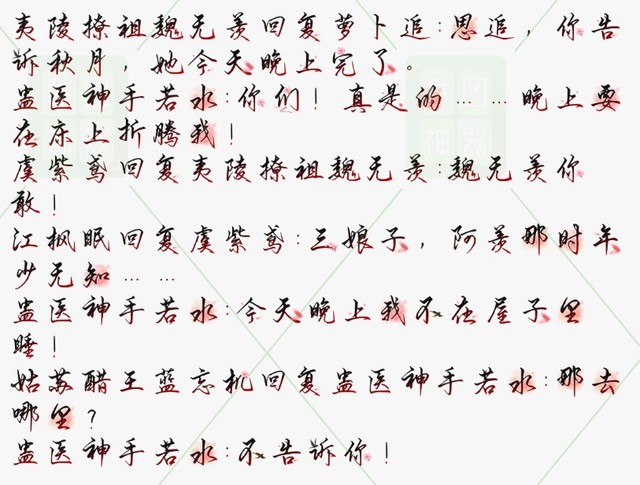 夷陵撩祖魏无羡回复萝卜追:思追，你告
诉秋月，她今天晚上完了。
蛊医神手若水:你们！真是的……晚上要
在床上折腾我！
虞紫鸢回复夷陵撩祖魏无羡:魏无羡你
敢！
江枫眠回复虞紫鸢:三娘子，阿羡那时年
少无知……
蛊医神手若水:今天晚上我不在屋子里
睡！
姑苏醋王蓝忘机回复蛊医神手若水:那去
哪里？
蛊医神手若水:不告诉你！